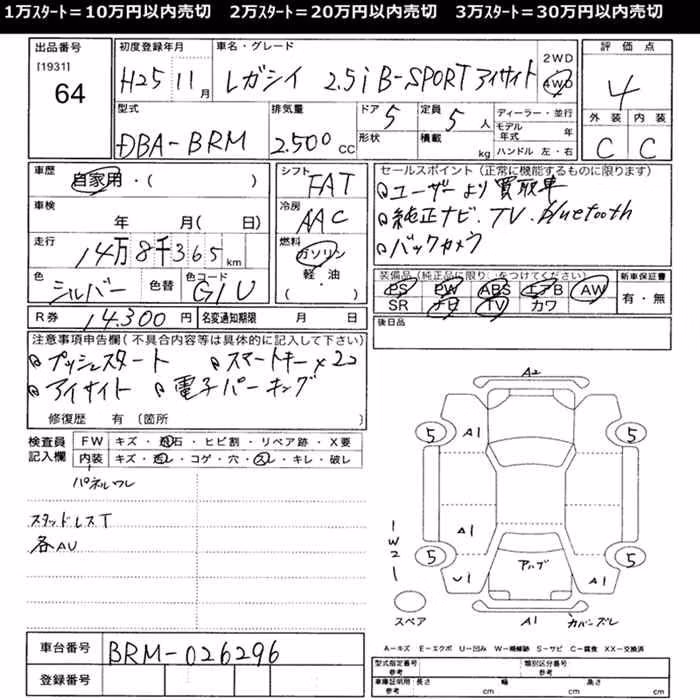 1万ｽﾀｰﾄ＝10万円以内売切　2万ｽﾀｰﾄ＝20万円以内売切　3万ｽﾀｰﾄ＝30万円以内売切
出品番号 [1931] 64
初度登録年月 H25 11月
車名・グレード レガシイ 2.5i B-SPORT アイサイト
2WD 4WD
評価点 4
外装 内装
C C
型式 DBA-BRM
排気量 2.500 CC
ドア 5 形状
定員 5 人 積載 kg
ディーラー・並行
モデル年式 年
ハンドル 左・右
車歴 自家用・( )
車検 年 月( 日)
走行 14万8千365 km
色 シルバー 色替 色コード G1U
シフト FAT
冷房 AAC
燃料 ガソリン
軽・油
( ・ )
セールスポイント(正常に機能するものに限ります)
ユーザーより買取車
純正ナビ.TV.Bluetooth
バックカメラ
装備品(純正品に限り○をつけてください)
PS PW ABS エアB AW
SR ナビ TV カワ
新車保証書 有・無
後日品
R券 14.300 円 名変通知期限 月 日
注意事項申告欄(不具合内容等は具体的に記入して下さい)
プッシュスタート スマートキー×2コ
アイサイト 電子パーキング
修復歴 有 (箇所 )
検査員記入欄
FW キズ・飛石・ヒビ割・リペア跡・X要
内装 キズ・汚レ・コゲ・穴・スレ・キレ・破レ
パネルワレ
スタッドレスT
各AU
A2
5 A1 5
A1
1
W2
1
5 U1 アルブ A1 5
スペア A1 カバンズレ
車台番号 BRM-026296
登録番号
A－キズ E－エクボ U－凹み W－補修跡 S－サビ C－腐食 XX－交換済
型式指定番号 参考 類別区分番号 参考
車庫証明用 参考 長さ cm 幅 cm 高さ cm